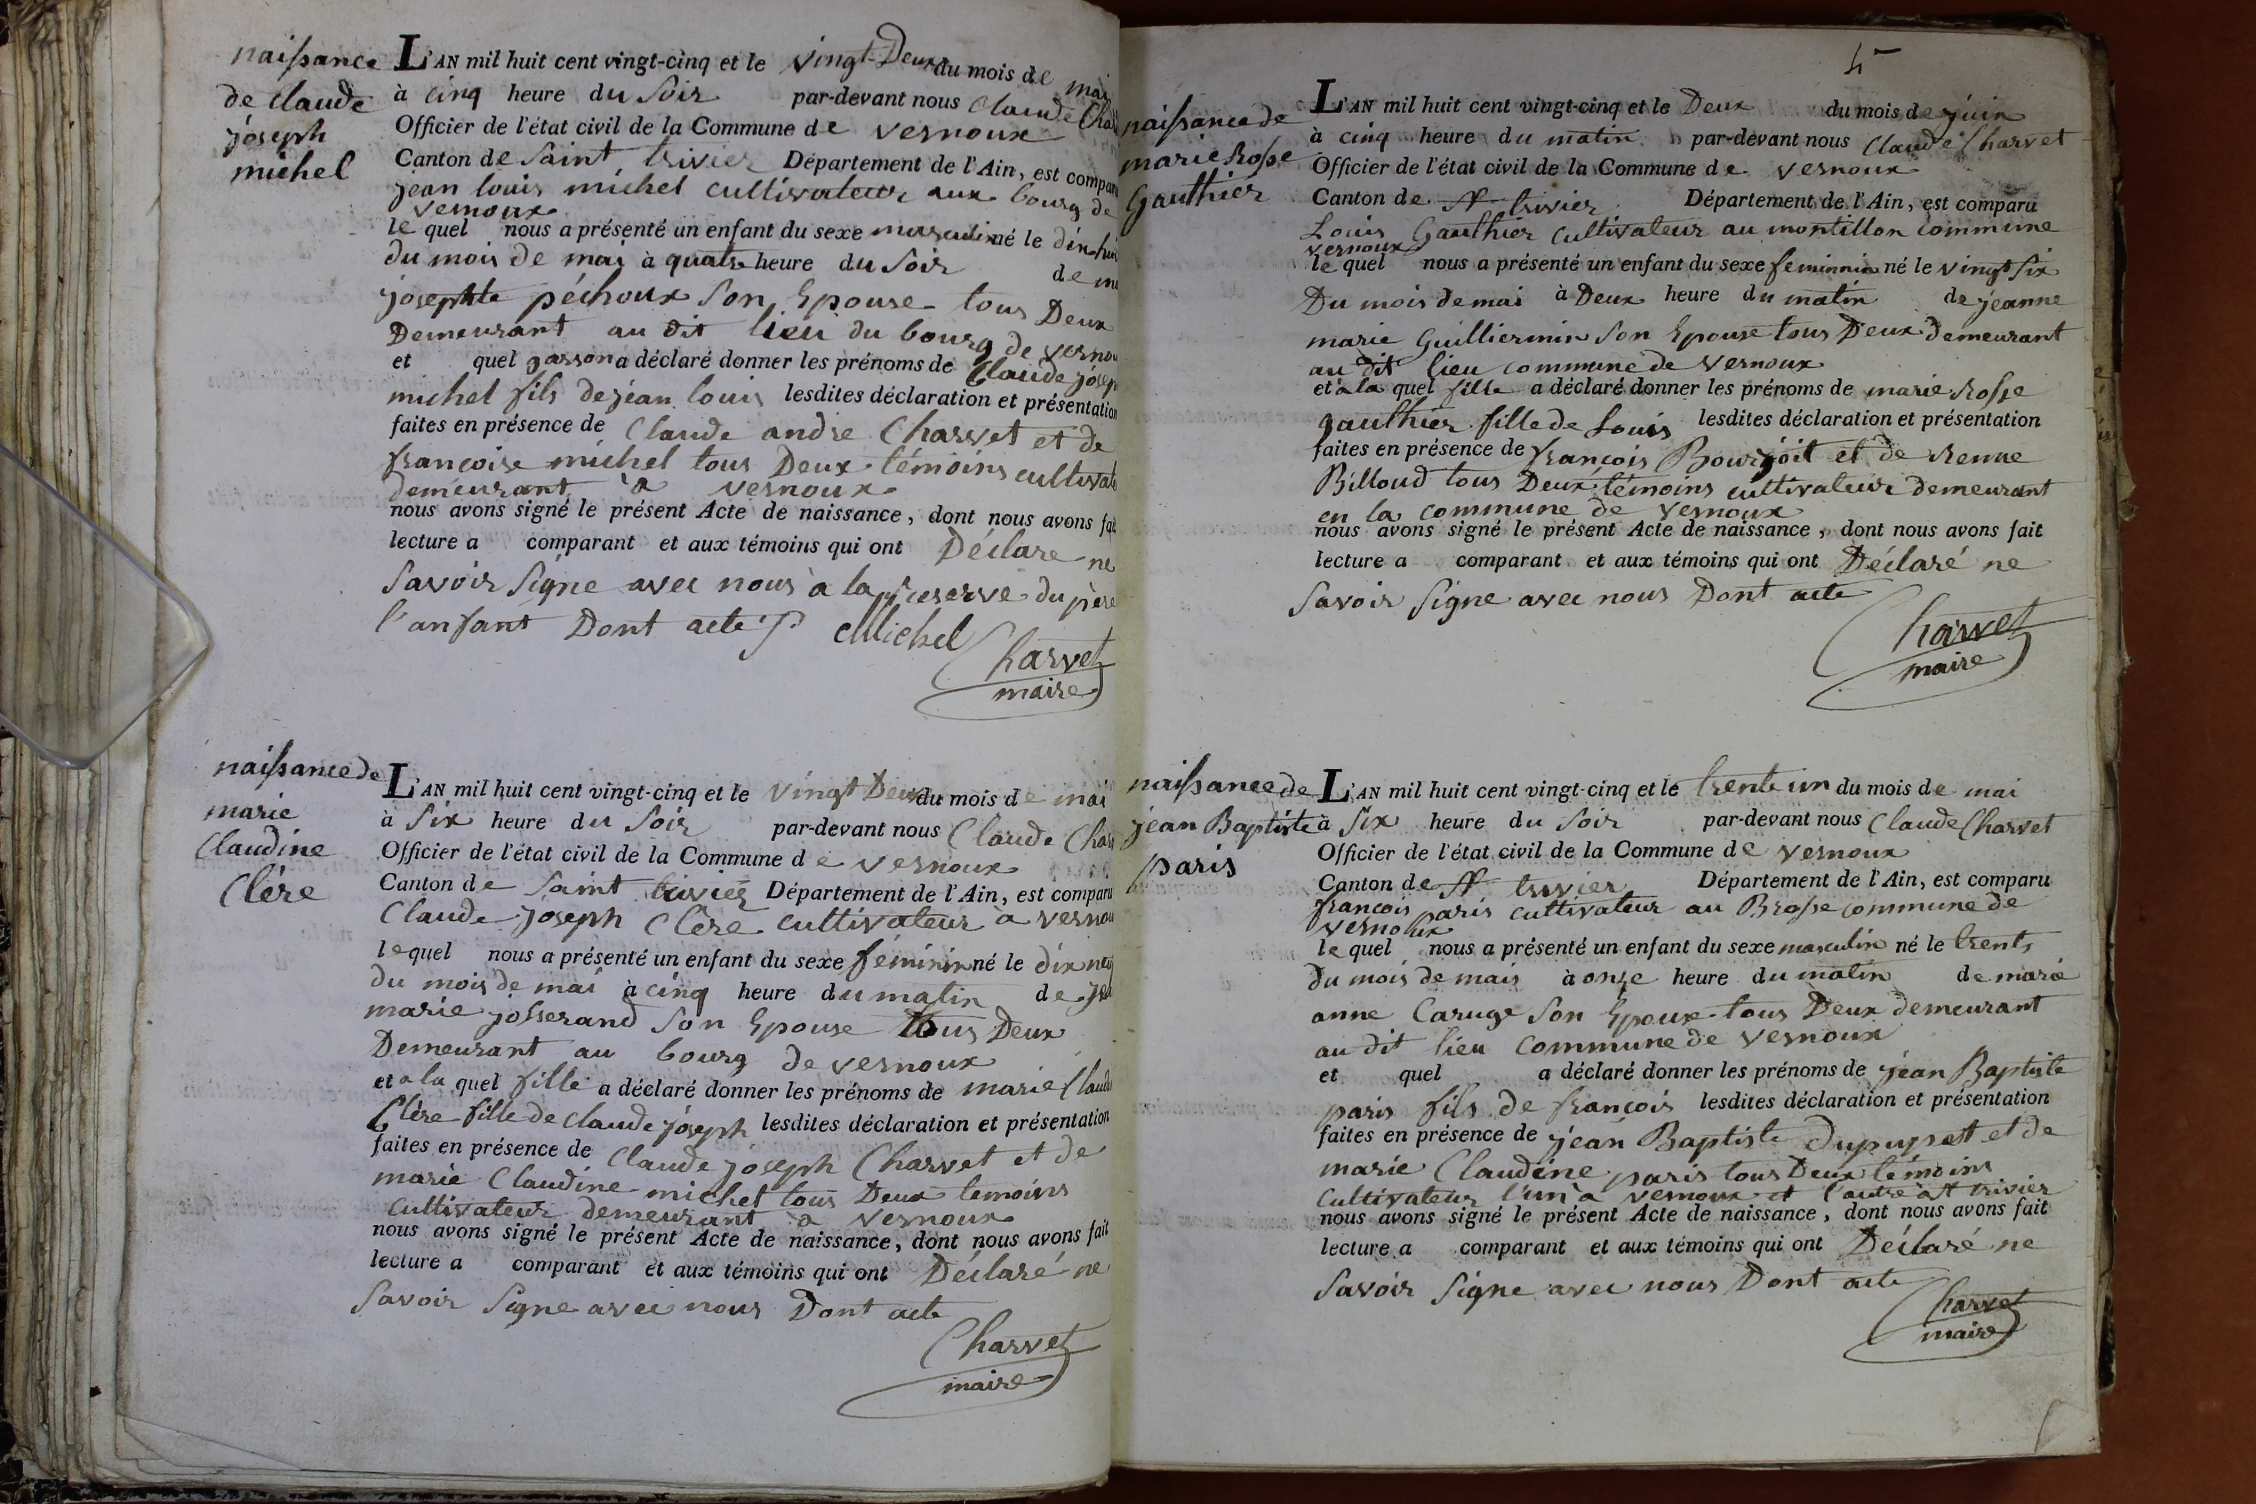 naissance
de Claude
joseph
michel
L'AN mil huit cent vingt-cinq et le vingt-Deux du mois de mai
à cinq heure du soir par-devant nous Claude
Officier de l'état civil de la Commune de vernoux
Canton de saint trivier Département de l'Ain, est
jean louis michel cultivateur aux bourg de
vernoux
le quel nous a présenté un enfant du sexe masculin né le
du mois de mai à quatre heure du soir de
josephte péchoux son Epouse tous Deux
Demeurant au dit lieu du bourg de
et quel garson a déclaré donner les prénoms de Claude
michel fils de jean louis lesdites déclaration et présentation
faites en présence de Claude andre Charvet et de
françoise michel tous Deux témoins
demeurant a vernoux
nous avons signé le présent Acte de naissance, dont nous avons
lecture a comparant et aux témoins qui ont Déclare ne
savoir signe avec nous a la reserve du père
l'anfant Dont acte Michel
Charvet
maire
naissance de
marie
Claudine
Clère
L'AN mil huit cent vingt-cinq et le vingt Deux du mois de mai
à six heure du soir par-devant nous Claude
Officier de l'état civil de la Commune de vernoux
Canton de saint trivier Département de l'Ain, est comparu
Claude joseph Clère cultivateur à
lequel nous a présenté un enfant du sexe féminin né le
du mois de mai à cinq heure du matin de
marie josserand son Epouse tous Deux
Demeurant au bourg de vernoux
et a la quel fille a déclaré donner les prénoms de marie
Clère fille de Claude joseph lesdites déclaration et présentation
faites en présence de Claude joseph Charvet et de
marie Claudine michel tous Deux temoins
Cultivateur demeurant a vernoux
nous avons signé le présent Acte de naissance, dont nous avons fait
lecture a comparant et aux témoins qui ont Déclaré ne
savoir signe avec nous Dont acte
Charvet
maire
naissance de
marie Rosse
Gauthier
L'AN mil huit cent vingt-cinq et le Deux du mois de juin
à cinq heure du matin par-devant nous Claude Charvet
Officier de l'état civil de la Commune de vernoux
Canton de St trivier Département de l'Ain, est comparu
Louis Gauthier cultivateur au montillon commune
vernoux
le quel nous a présenté un enfant du sexe feminnin né le vingt six
Du mois de mai à Deux heure du matin de jeanne
marie Guilliermin son Epouse tous Deux demeurant
au dit lieu commune de vernoux
et a la quel fille a déclaré donner les prénoms de marie Rosse
gauthier fille de Louis lesdites déclaration et présentation
faites en présence de françois et de
Billoud tous Deux témoins cultivateur demeurant
en la commune de vernoux
nous avons signé le présent Acte de naissance, dont nous avons fait
lecture a comparant et aux témoins qui ont Déclaré ne
savoir signe avec nous Dont acte
Charvet
maire
naissance de
jean Baptiste
paris
L'AN mil huit cent vingt-cinq et le trente un du mois de mai
à six heure du soir par-devant nous Claude Charvet
Officier de l'état civil de la Commune de vernoux
Canton de St trivier Département de l'Ain, est comparu
françois paris cultivateur au Brosse commune de
vernoux
le quel nous a présenté un enfant du sexe masculin né le trente
du mois de mais à onze heure du matin de marie
anne Caruge son Epoux tous Deux demeurant
au dit lieu commune de vernoux
et quel a déclaré donner les prénoms de jean Baptiste
paris fils de françois lesdites déclaration et présentation
faites en présence de jean Baptiste Dupupet et de
marie Claudine paris tous Deux témoins
Cultivateur l'un a vernoux et l'autre à St trivier
nous avons signé le présent Acte de naissance, dont nous avons fait
lecture a comparant et aux témoins qui ont Déclaré ne
savoir signe avec nous Dont acte
Charvet
maire